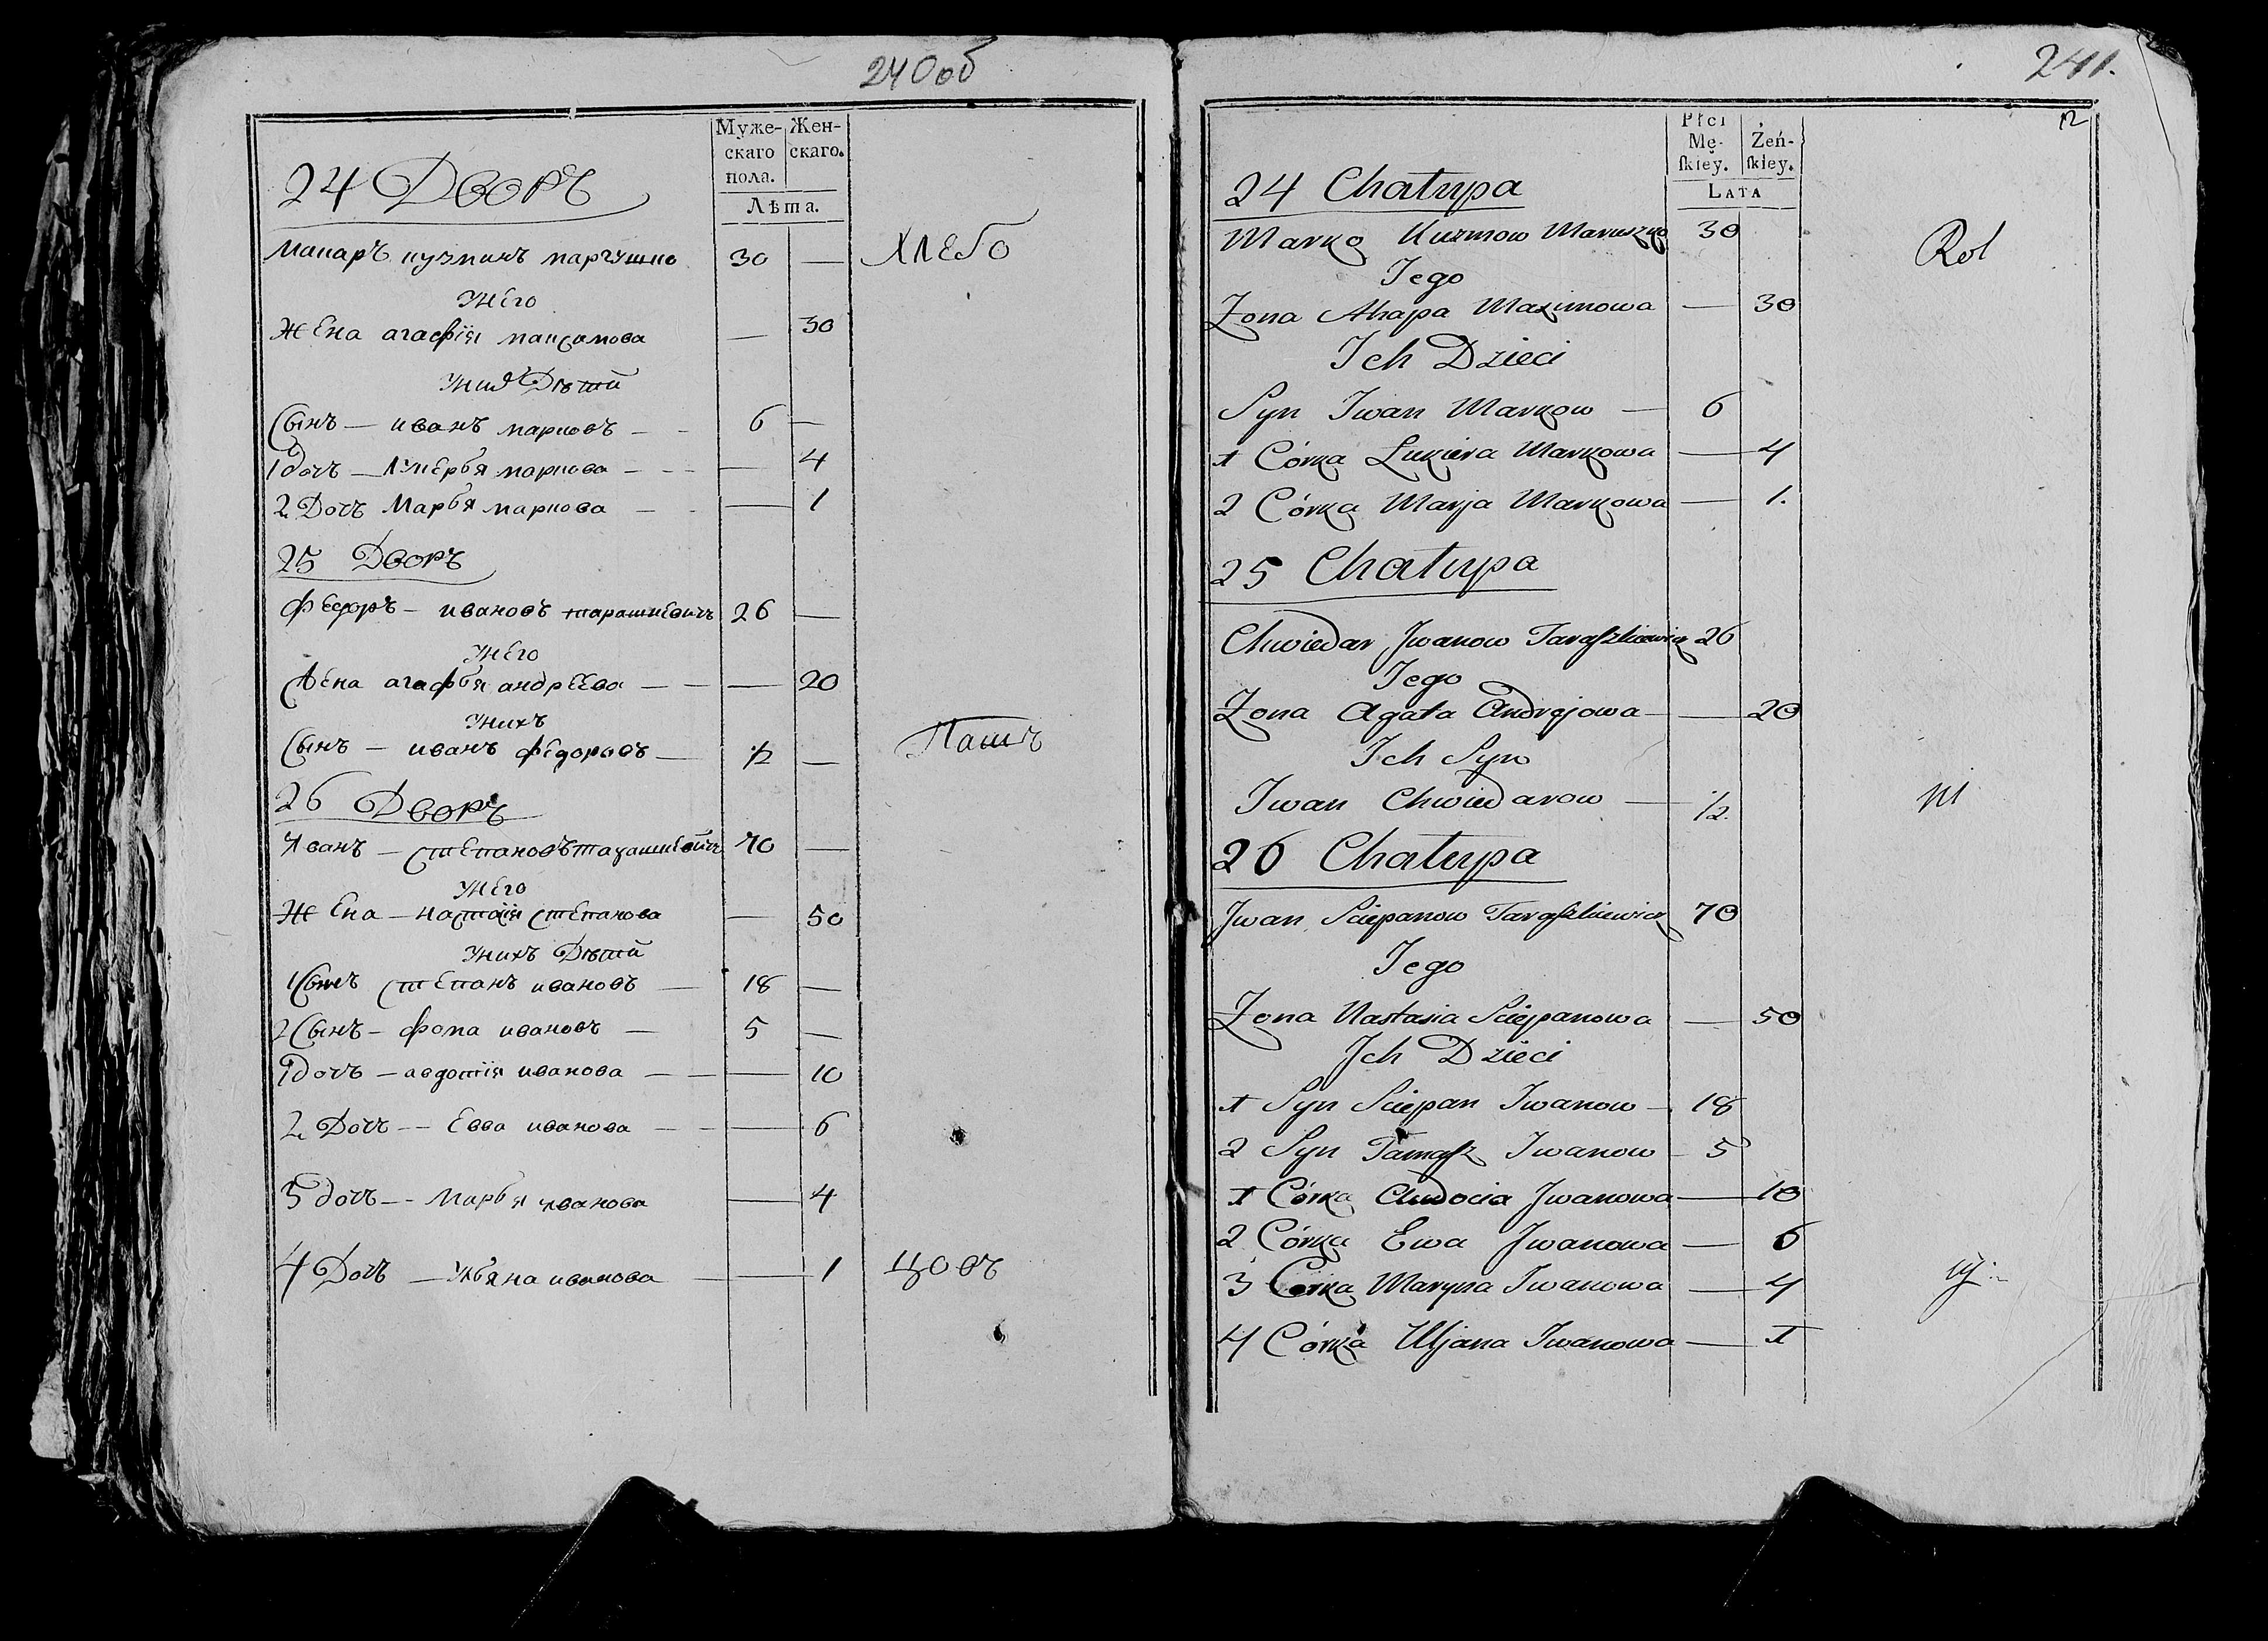 240об
Муже-
скаго
пола.
Жен-
скаго.
Лѣта.
24 Дворъ
Макаръ кузминъ маргушко 30 — Хлебо
У него
Жена агафія максимова — 30
У них Дѣтй
Сынъ — иванъ марковъ — 6 —
1 дочъ — лукерья маркова — — 4
2 Дочъ Марья маркова — — 1
25 Дворъ
Федоръ — ивановъ тарашкевичъ 26 —
У него
Жена агафья андреева — — 20
У нихъ
Сынъ — иванъ федоровъ — 1/2 — Пашъ
26 Дворъ
Иванъ — степановъ тарашкевичъ 70 —
У него
Жена — настасія степанова — 50
У нихъ Дѣтй
1 Сынъ степанъ ивановъ — 18 —
2 Сынъ — фома ивановъ — 5 —
1 дочъ — авдотія иванова — — 10
2 Дочъ — Евва иванова — — 6
3 дочъ — Марья иванова — 4
4 Дочъ — Ульяна иванова — — 1 цовъ
241.
12
Płci
Mę-
ſkiey.
Żeń-
ſkiey.
Lata
24 Chatupa
Marko Kuzmow Maruszko 30 Rol
Jego
Zona Ahapa Maximowa — 30
Ich Dzieci
Syn Iwan Markow — 6
1 Córka Lukiera Markowa — 4
2 Córka Marja Markowa — 1.
25 Chatupa
Chwiedar Jwanow Taraſzkiewicz 26
Jego
Zona Agata Andrejowa — — 20
Ich Syn
Iwan Chwiedarow — 1/2. ni
26 Chatupa
Jwan Sciepanow Taraſzkiewicz 70
Jego
Zona Nastasia Sciepanowa — 50
Jch Dzieci
1 Syn Sciepan Iwanow — 18
2 Syn Tamaſz Iwanow — 5
1 Córka Audocia Jwanowa — 10
2 Córka Ewa Jwanowa — 6
3 Córka Maryna Iwanowa — 4 cy
4 Córka Uljana Iwanowa — 1